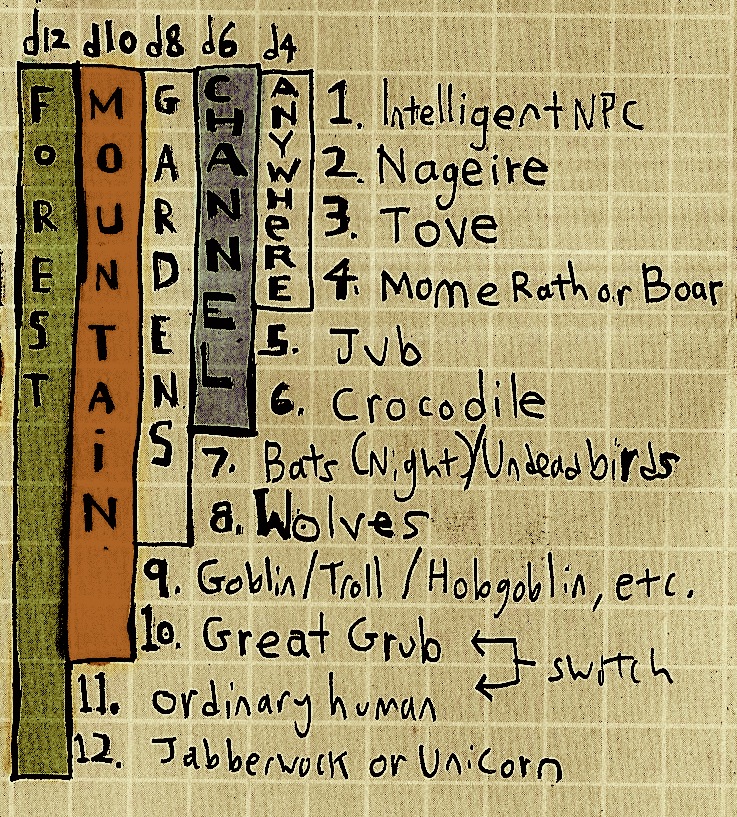 d12 d10 d8 d6 d4
FoREST
MOUNTAiN
GARDENS
CHANNEL
ANYWHeRE
1. Intelligent NPC
2. Nageire
3. Tove
4. Mome Rath or Boar
5. Jub
6. Crocodile
7. Bats (Night)/Undead birds
8. Wolves
9. Goblin/Troll/Hobgoblin, etc.
10. Great Grub
switch
11. ordinary human
12. Jabberwock or Unicorn